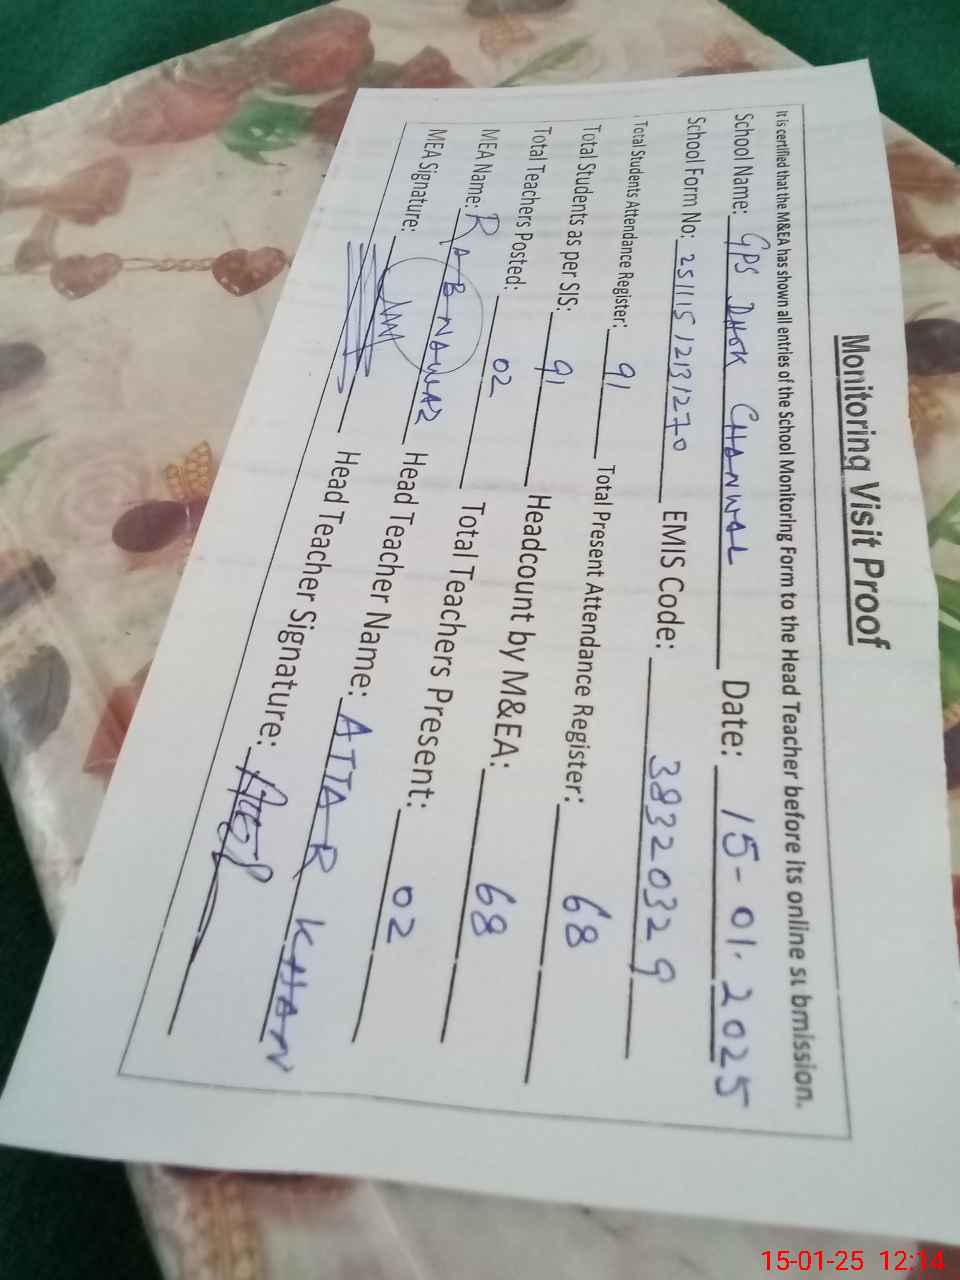 Monitoring Visit Proof
It is certified that the M&EA has shown all entries of the School Monitoring Form to the Head Teacher before its online submission.
School Name: GPS DHOK CHANWAL Date: 15-01.2025
School Form No: 25111512131270 EMIS Code: 38320329
Total Students Attendance Register: 91 Total Present Attendance Register: 68
Total Students as per SIS: 91 Headcount by M&EA: 68
Total Teachers Posted: 02 Total Teachers Present: 02
MEA Name: RAB NAWAZ Head Teacher Name: ATTA R KHAN
MEA Signature: Head Teacher Signature:
15-01-25 12:14